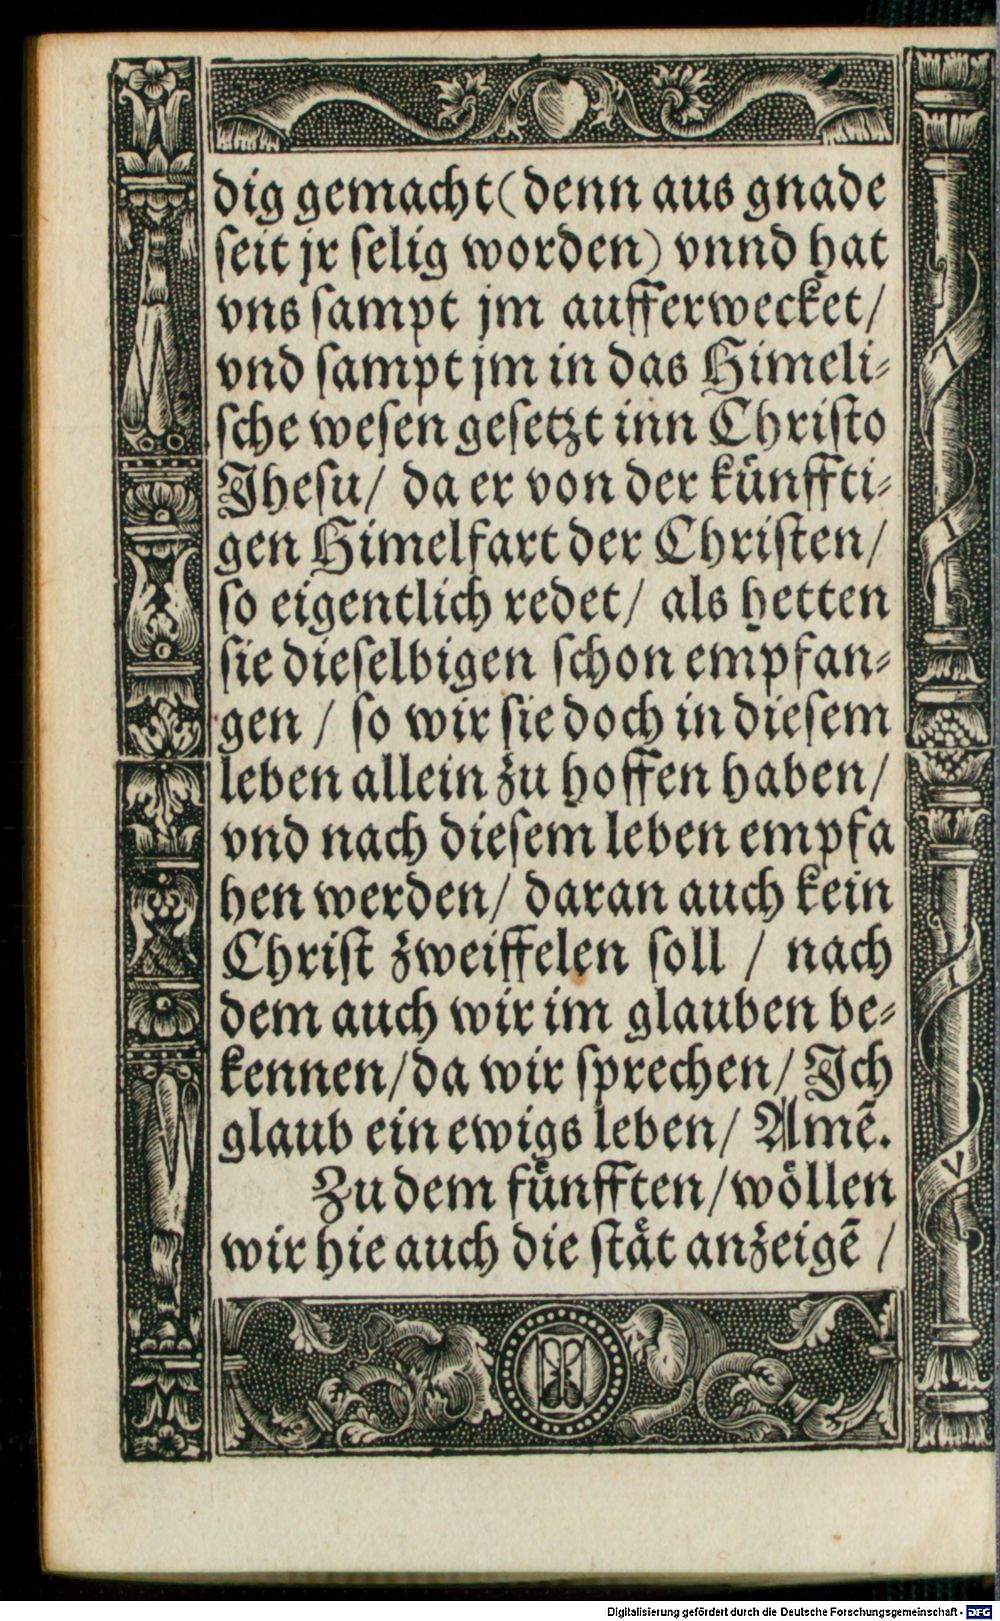 dig gemacht (denn aus gnade
seit jr selig worden) vnnd hat
vns sampt jm aufferwecket/
vnd sampt jm in das Himeli⸗
sche wesen gesetzt inn Christo
Jhesu/ da er von der künffti⸗
gen Himelfart der Christen/
so eigentlich redet/ als hetten
sie dieselbigen schon empfan⸗
gen / so wir sie doch in diesem
leben allein zu hoffen haben/
vnd nach diesem leben empfa
hen werden/ daran auch kein
Christ zweiffelen soll / nach
dem auch wir im glauben be⸗
kennen/da wir sprechen/ Ich
glaub ein ewigs leben/ Amẽ.
Zu dem fünfften/wöllen
wir hie auch die stät anzeigẽ /
Digitalisierung gefördert durch die Deutsche Forschungsgemeinschaft - DFG